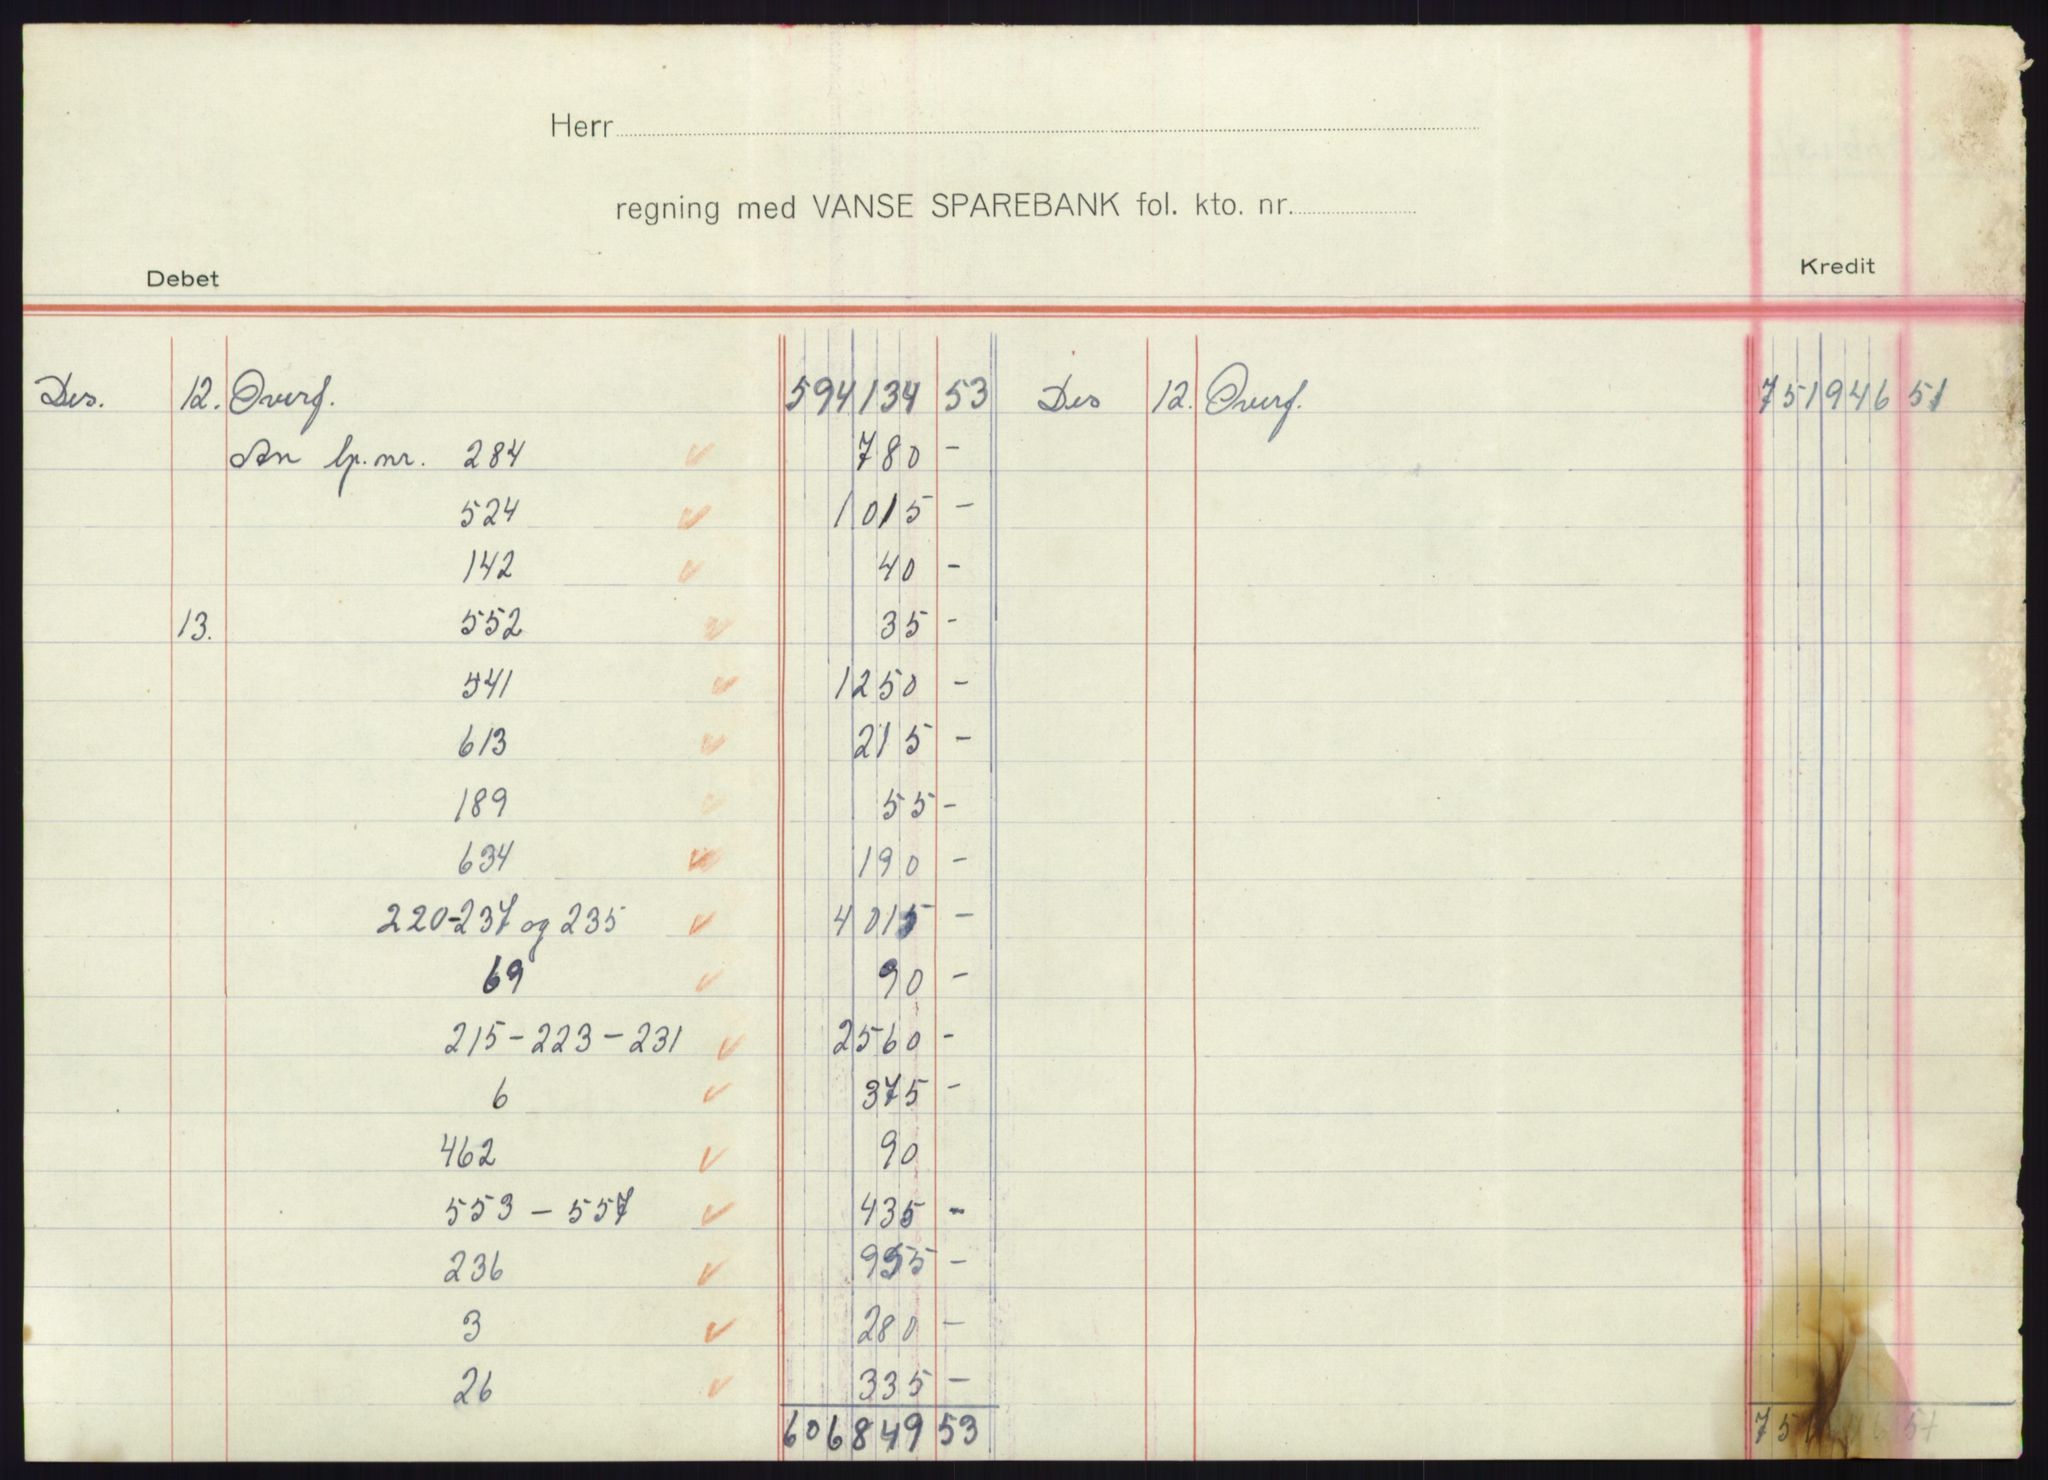 Herr
regning med VANSE SPAREBANK fol. kto. nr.
Debet Kredit
Des. 12. Overf. 594134 53 Des 12. Overf. 751946 51
An lp.nr. 284 ✓ 780 -
524 ✓ 1015 -
142 ✓ 40 -
13. 552 ✓ 35 -
541 ✓ 1250 -
613 ✓ 215 -
189 ✓ 55 -
634 ✓ 190 -
220-237 og 235 ✓ 4015 -
69 ✓ 90 -
215-223-231 ✓ 2560 -
6 ✓ 375 -
462 ✓ 90
553-557 ✓ 435 -
236 ✓ 955 -
3 ✓ 280 -
26 ✓ 335 -
606849 53 751 46 51